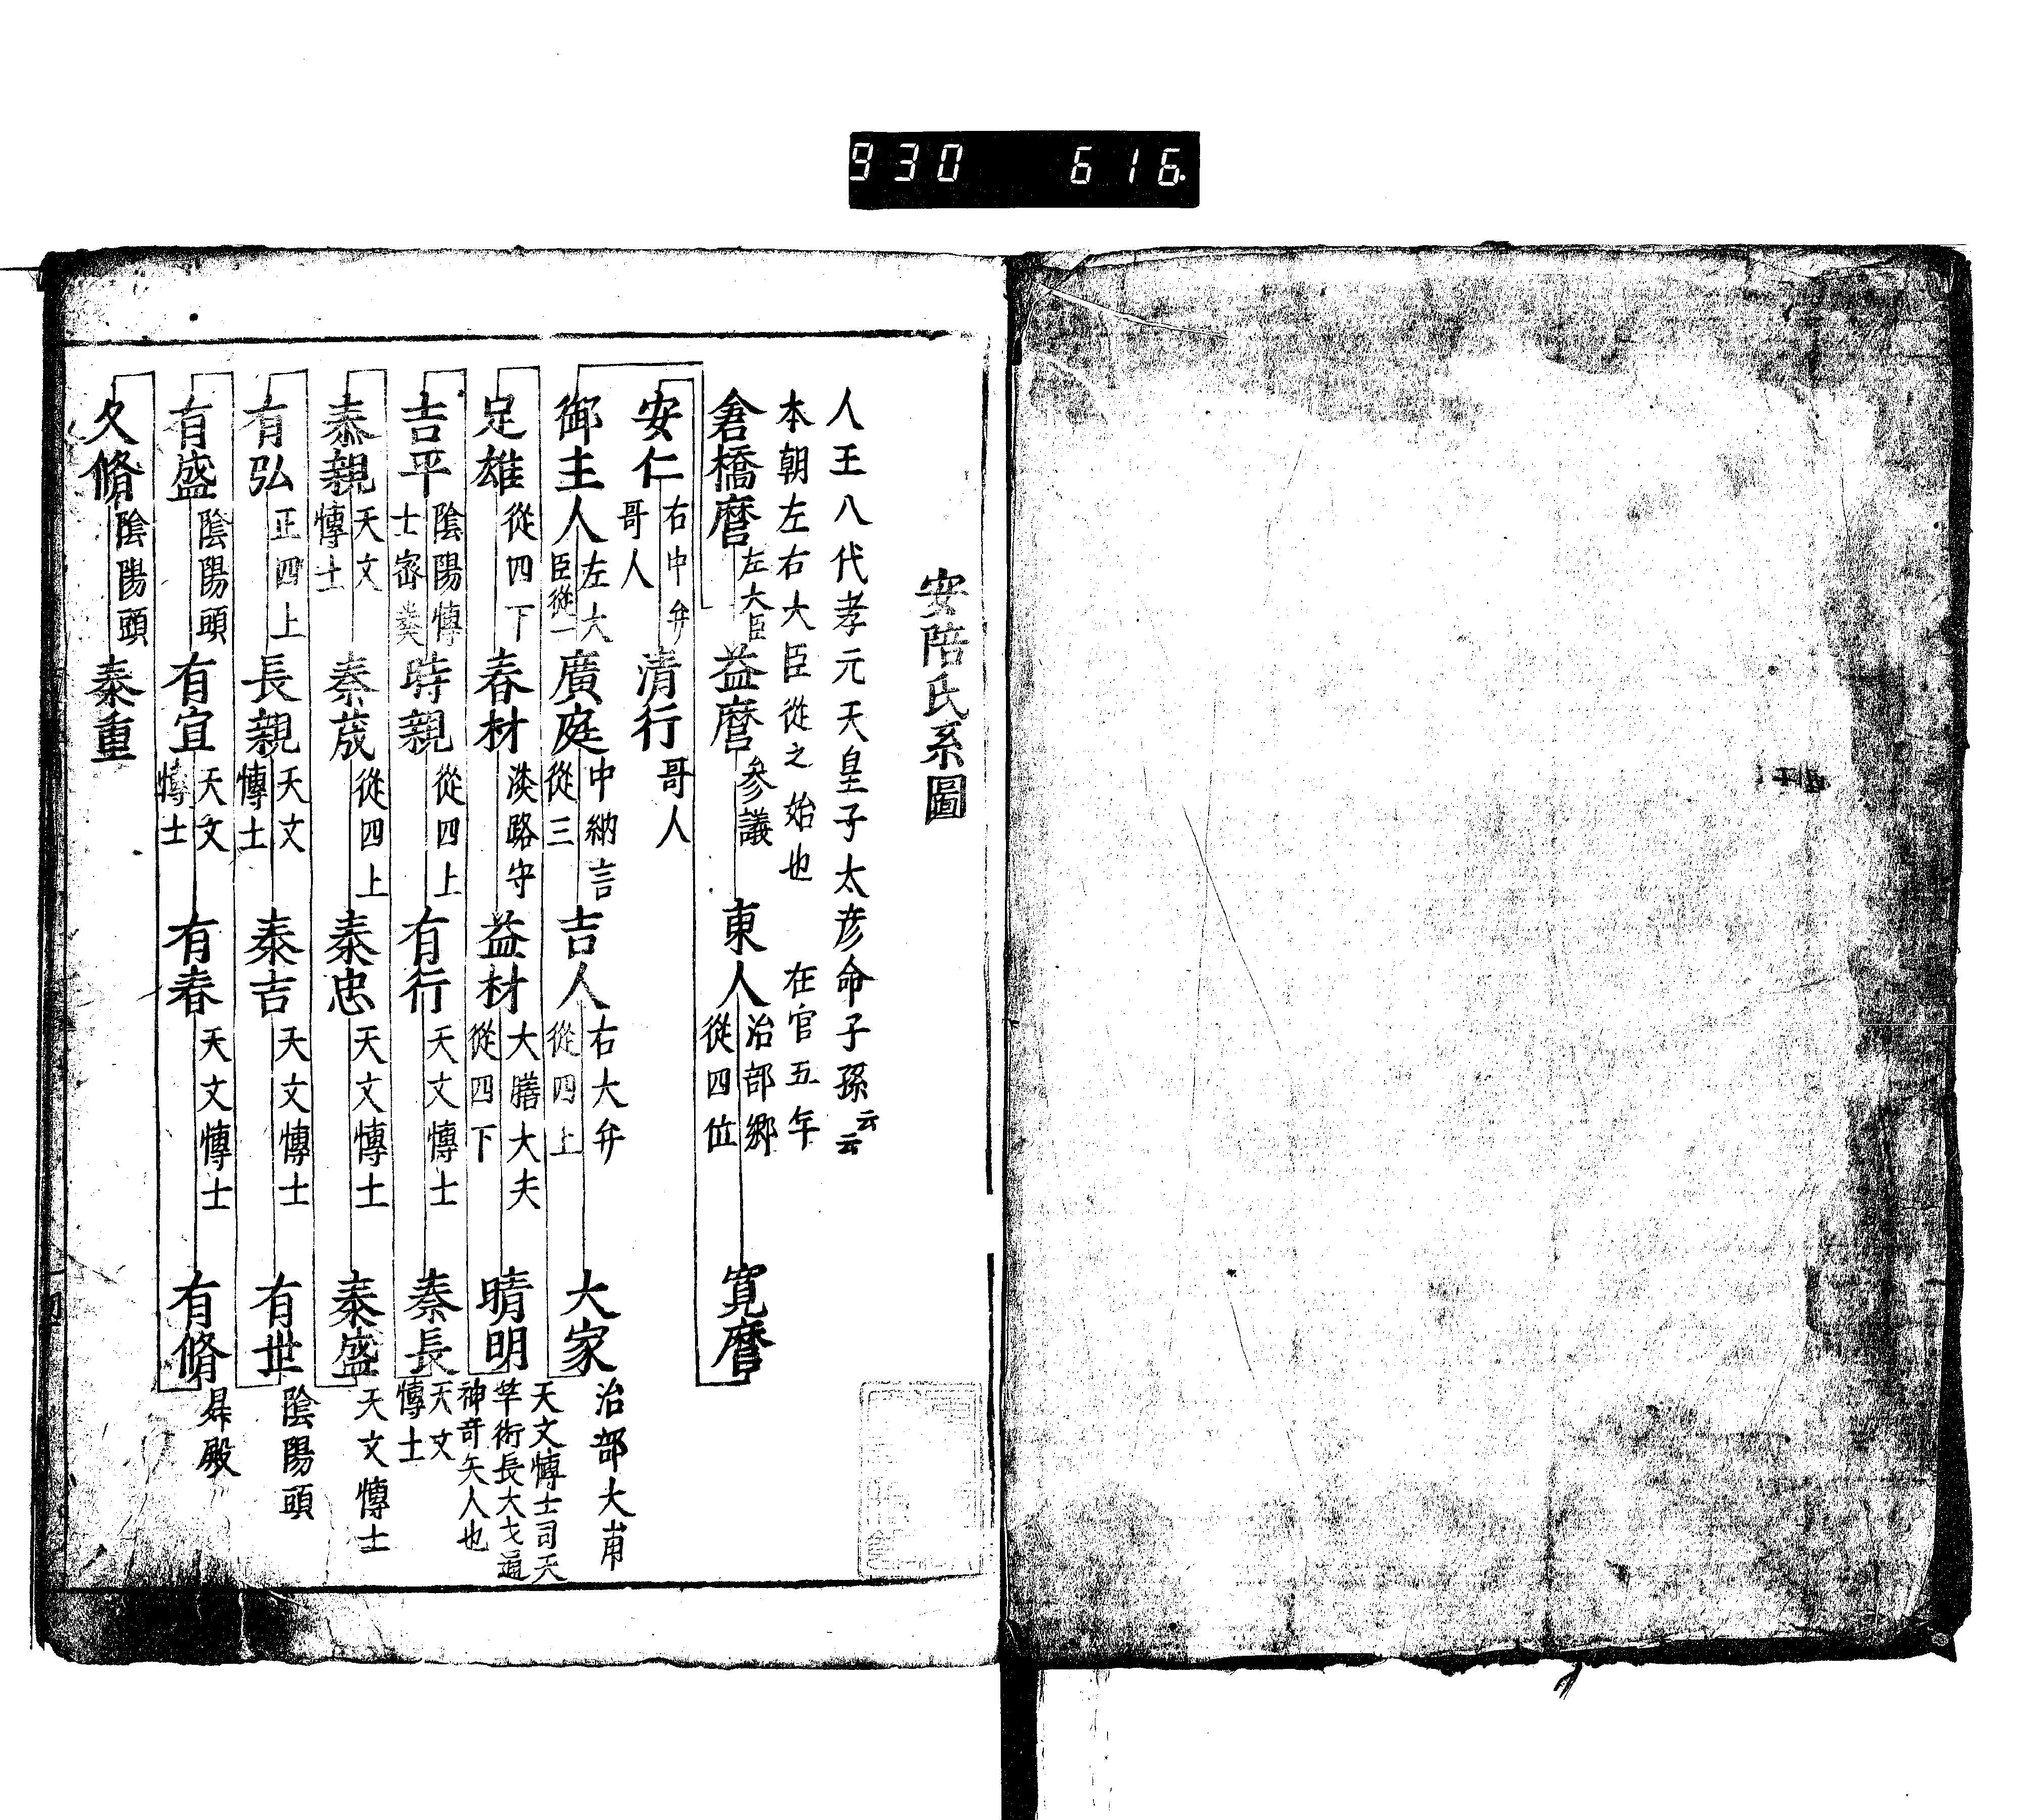 930 616
安陪氏系圖
人王八代孝元天皇子太彦命子孫云云
本朝左右大臣從之始也 在官五年
倉橋麿 左大臣 益麿 参議 東人 治部郷 從四位 寛麿
安仁 右中弁 哥人 清行 哥人
御主人 左大臣從一 廣庭 中納言 從三 吉人 右大弁 從四上 大家 治部大甫
足雄 從四下 春材 淡路守 益材 大膳大夫 從四下 晴明 天文愽士司天 竿術長大文通 神奇矢人也
吉平 陰陽愽士 時親 從四上 有行 天文愽士 泰長 天文愽士
泰親 天文愽士 泰茂 從四上 泰忠 天文愽士 泰盛 天文愽士
有弘 正四上 長親 天文愽士 泰吉 天文愽士 有世 陰陽頭
有盛 陰陽頭 有宣 天文愽士 有春 天文愽士 有脩 昇殿
久脩 陰陽頭 泰重